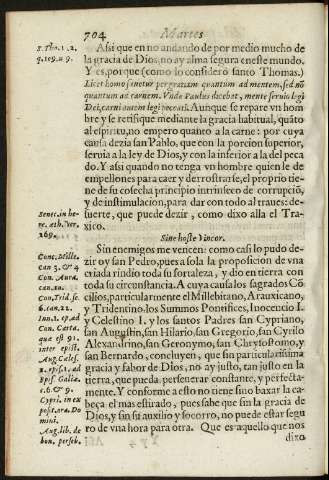 704
Martes
S. Tho. 1. 2.
q. 109. a 9.
Asi que en no andando de por medio mucho de
la gracia de Dios, no ay alma segura en este mundo.
Y es, porque (como lo consideró santo Thomas.)
Licet homo sanetur per gratiam quantum ad mentem, sed nō
quantum ad carnem. Vnde Paulus dicebat, mente seruio legi
Dei, carni autem legi peccati. Aunque se repare vn hom
bre y se retifique mediante la gracia habitual, quāto
al espiritu, no empero quanto a la carne: por cuya
causa dezia san Pablo, que con la porcion superior,
seruia a la ley de Dios, y con la inferior a la del peca
do. Y asi quando no tenga vn hombre quien le de
empellones para caer y derrostrarse, el proprio tie-
ne de su cosecha principio intrinseco de corrupciō,
y de instimulacion, para dar con todo al traues: de-
suerte, que puede dezir, como dixo alla el Tra-
xico.
Senec. in he-
re. æth. Ver.
269.
Sine hoste vincor.
Sin enemigos me vencen: como casi lo pudo de-
zir oy san Pedro, pues a sola la proposicion de vna
criada rindio toda su fortaleza, y dio en tierra con
toda su circunstancia. A cuya causa los sagrados Cō
cilios, particularmente el Milebitano, Arauxicano,
y Tridentino, los Summos Pontifices, Inocencio I.
y Celestino I. y los santos Padres san Cypriano,
san Augustin, san Hilario, san Gregorio, san Cyrilo
Alexandrino, san Geronymo, san Chrysostomo, y
san Bernardo, concluyen, que sin particularissima
gracia y fabor de Dios, no ay justo, tan justo en la
tierra, que pueda perseuerar constante, y perfecta-
mente. Y conforme a esto no tiene sino baxar la ca-
beça el mas estirado, pues sabe que sin la gracia de
Dios, y sin su auxilio y socorro, no puede estar segu
ro de vna hora para otra. Que es aquello que nos
Conc. Mille.
can 3. & 4
Con. Aura.
can. 10.
Con. Trid. se.
6. can. 22.
Inn. 1. ep. ad
Con. Carta.
que est 91.
inter epist.
Aug. Celes.
1. epist. 1. ad
Epis. Galia.
c. 6. & 9.
Cypri. in ex
post. ora. Do
mini.
Aug. lib. de
bon. perseb.
Yy 4
dixo